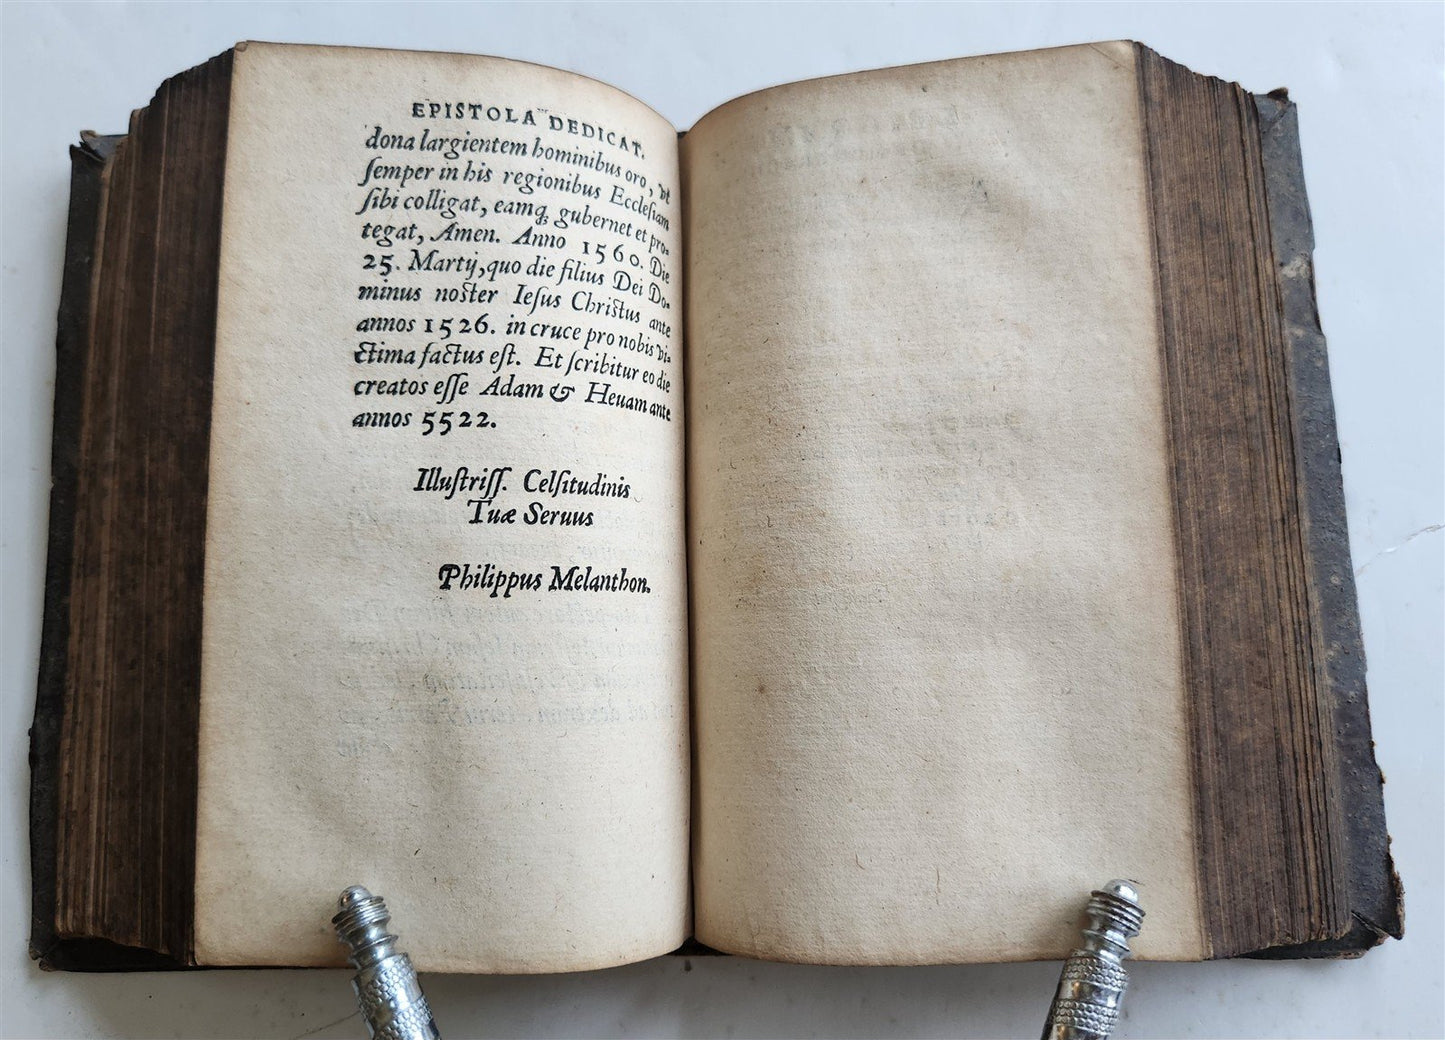 EPISTOLA DEDICAT.
dona largientem hominibus oro, vt
ſemper in his regionibus Eccleſiam
ſibi colligat, eamq́; gubernet et pro-
tegat, Amen. Anno 1560. Die
25. Martij, quo die filius Dei Do-
minus noſter Ieſus Chriſtus ante
annos 1526. in cruce pro nobis vi-
ctima factus eſt. Et ſcribitur eo die
creatos eſſe Adam & Heuam ante
annos 5522.
Illuſtriſſ. Celſitudinis
Tuæ Seruus
Philippus Melanthon.